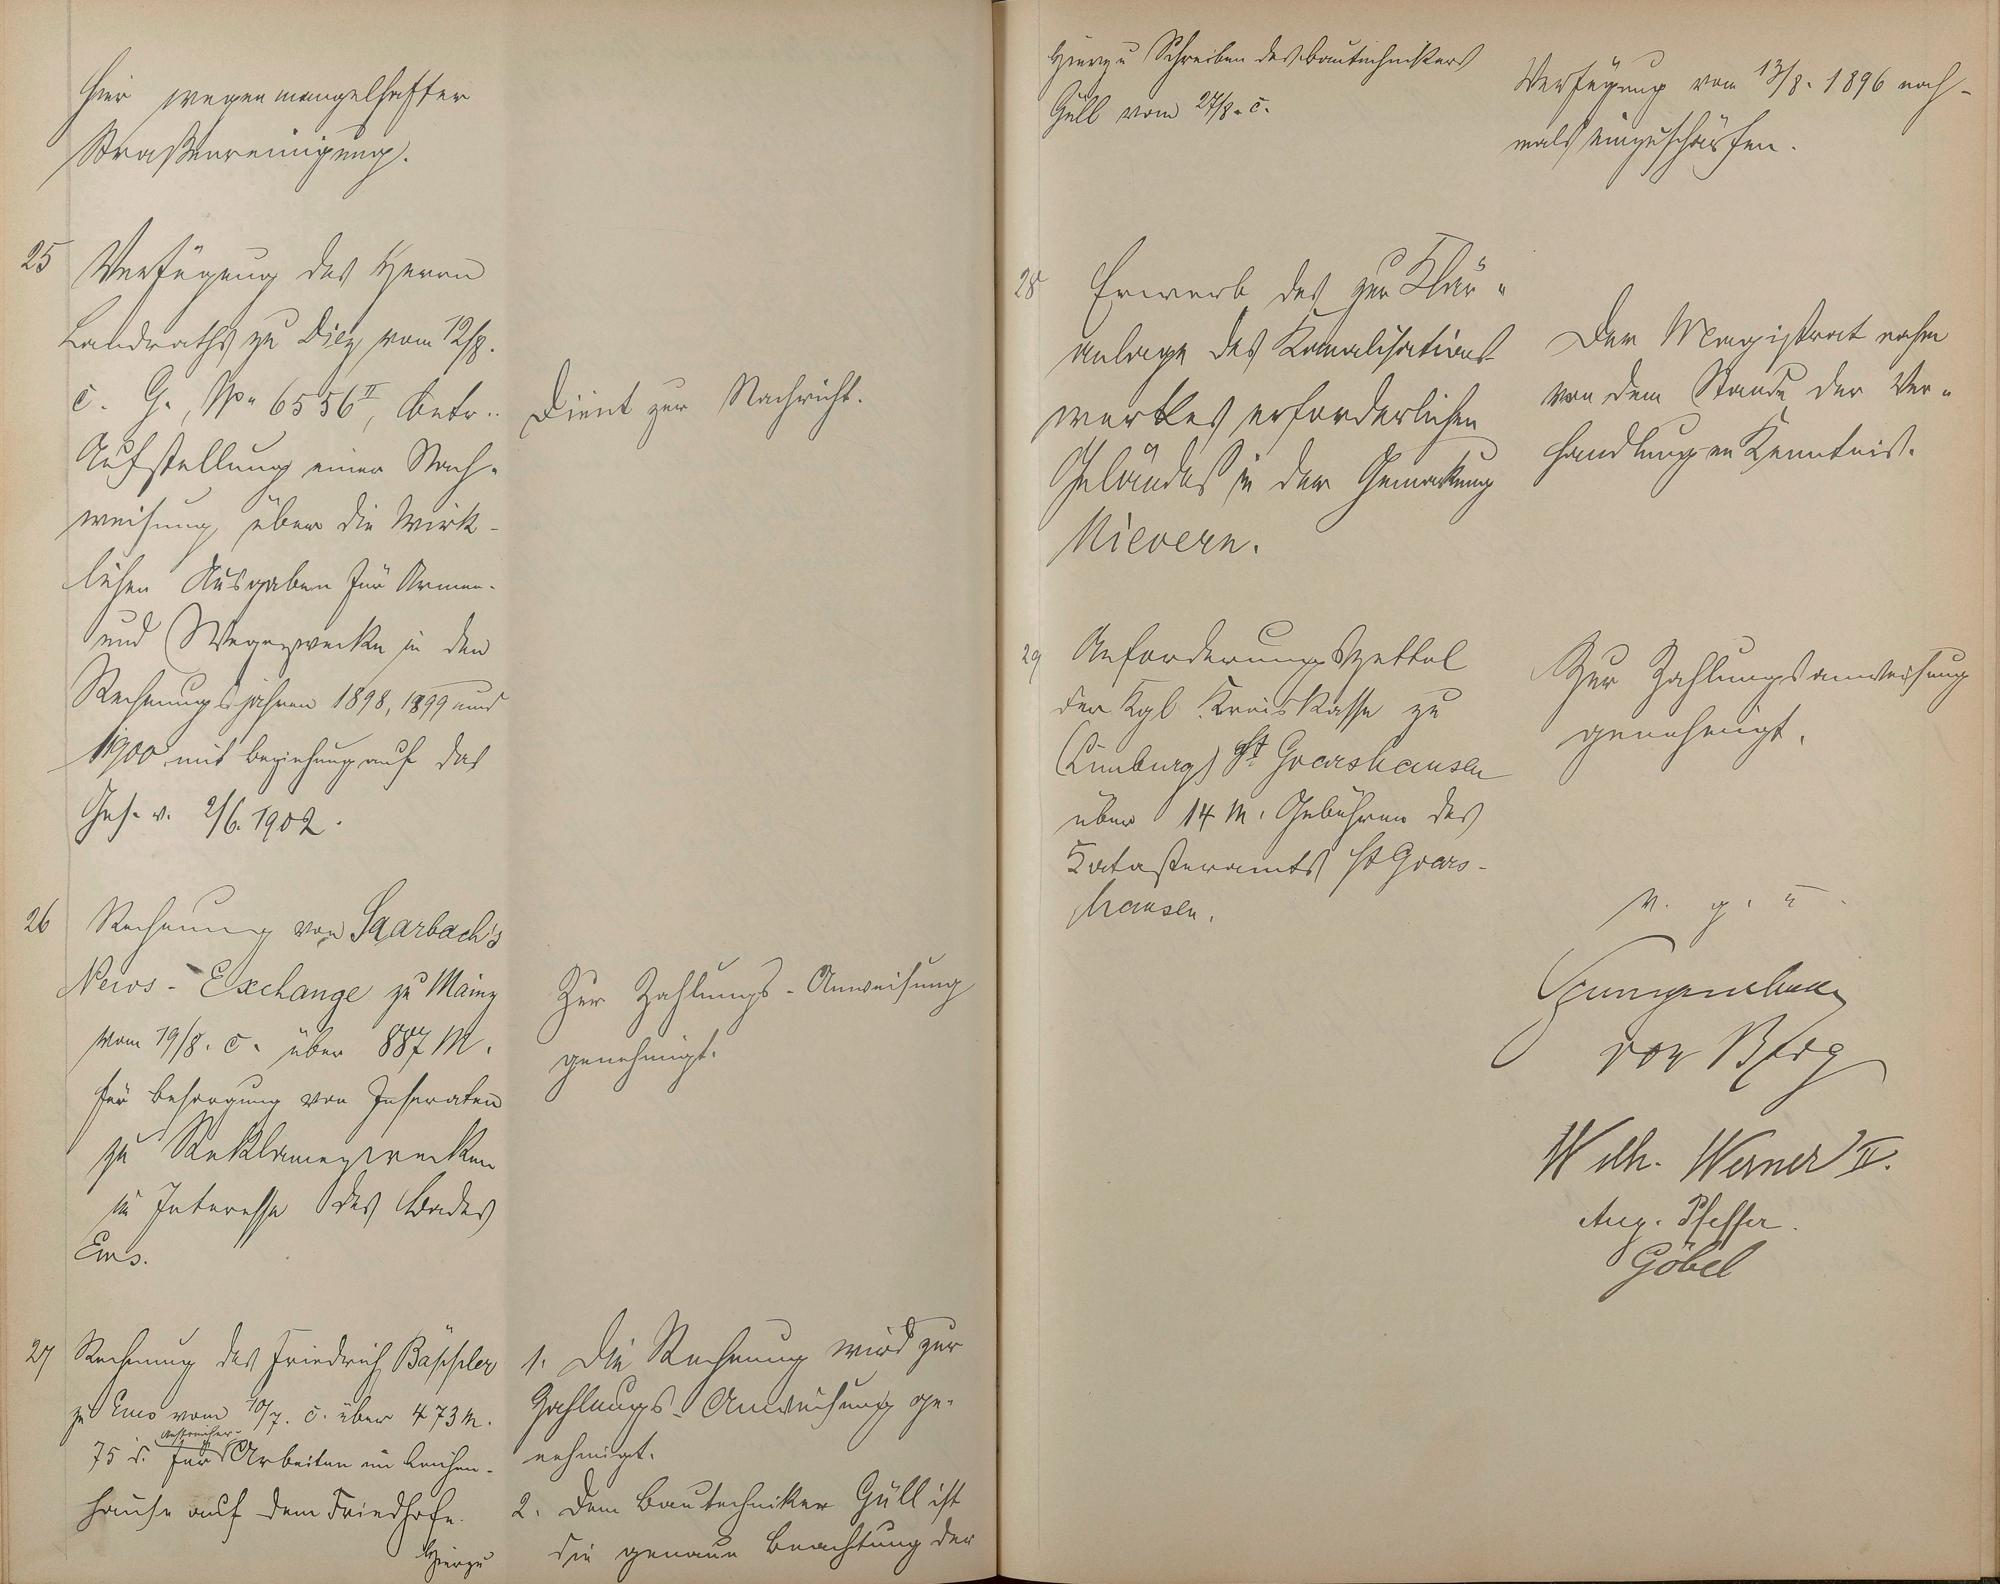 hier wegen mangelhafter
Straßenreinigung.
25 Verfügung des Herrn
Landraths zu Diez vom 12/8.
c. G., No 6556 II, betr.
Aufstellung einer Nach-
weisung über die wirk-
lichen Ausgaben für Armen-
und Wegezwecke in den
Rechnungsjahren 1898, 1899 und
1900 mit Beziehung auf das
Ges. v. 2/6. 1902.
Dient zur Nachricht.
26 Rechnung von Saarbach's
News-Exchange zu Mainz
vom 19/8. c. über 887 M.
für Besorgung von Inseraten
zu Reklamezwecken
im Interesse des Bades
Ems.
Zur Zahlungs-Anweisung
genehmigt.
27 Rechnung des Friedrich Bässler
zu Ems vom 10/7. c. über 473 M.
75 d. für Anstreicher-Arbeiten im Leichen-
hause auf dem Friedhofe.
Hierzu
1. Die Rechnung wird zur
Zahlungs-Anweisung ge-
nehmigt.
2. Dem Bautechniker Güll ist
die genaue Beachtung der
Hierzu Schreiben des Bautechnikers
Güll vom 27/8. c.
Verfügung vom 13/8. 1896 noch-
mals einzuschärfen.
28 Erwerb des zur Klär-
anlage des Kanalisations-
werkes erforderlichen
Geländes in der Gemarkung
Nievern.
Der Magistrat nahm
von dem Stande der Ver-
handlungen Kenntnis.
29 Anforderungszettel
der Kgl. Kreiskasse zu
(Limburg) St Goarshausen
über 14 M. Gebühren des
Katasteramts St Goars-
hausen.
Zur Zahlungsanweisung
genehmigt.
v. g. u.
von Berg
Wilh. Werner II.
Aug. Pfeffer.
Göbel